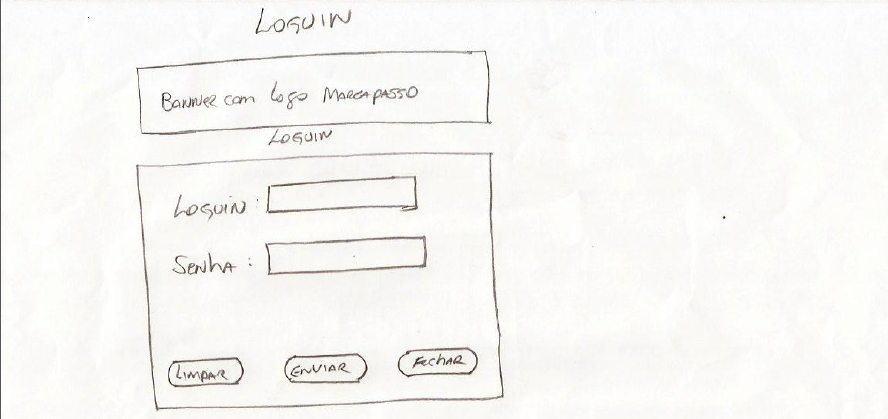 LOGUIN
BANNER com Logo MARCAPASSO
LOGUIN
LOGUIN:
SENHA:
LIMPAR ENVIAR FECHAR